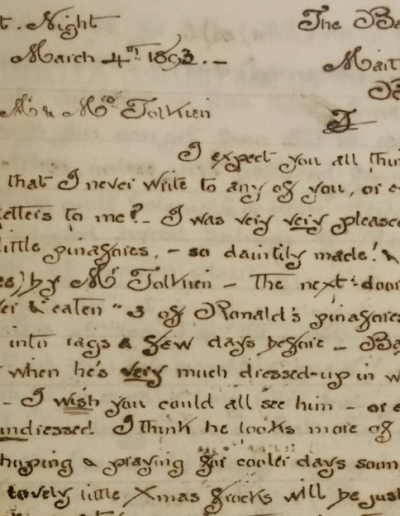 t. Night The Ba
March 4th 1893. –
Mait
Mr & Mrs Tolkien
I expect you all thin
that I never write to any of you, or e
etters to me? – I was very very pleased
little pinafores, – so daintily made! &
es) by Mr Tolkien – The next-door
er & eaten" 3 of Ronald's pinafores
into rags a few days before – Ba
when he's very much dressed-up in w
– I wish you could all see him – or e
undressed! I think he looks more of
hoping & praying for cooler days soon
lovely little Xmas frocks will be just